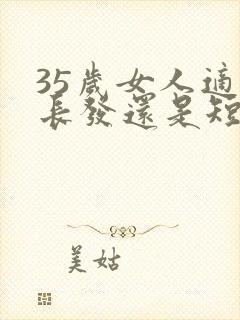 35歲女人適
長發還是短
美姑